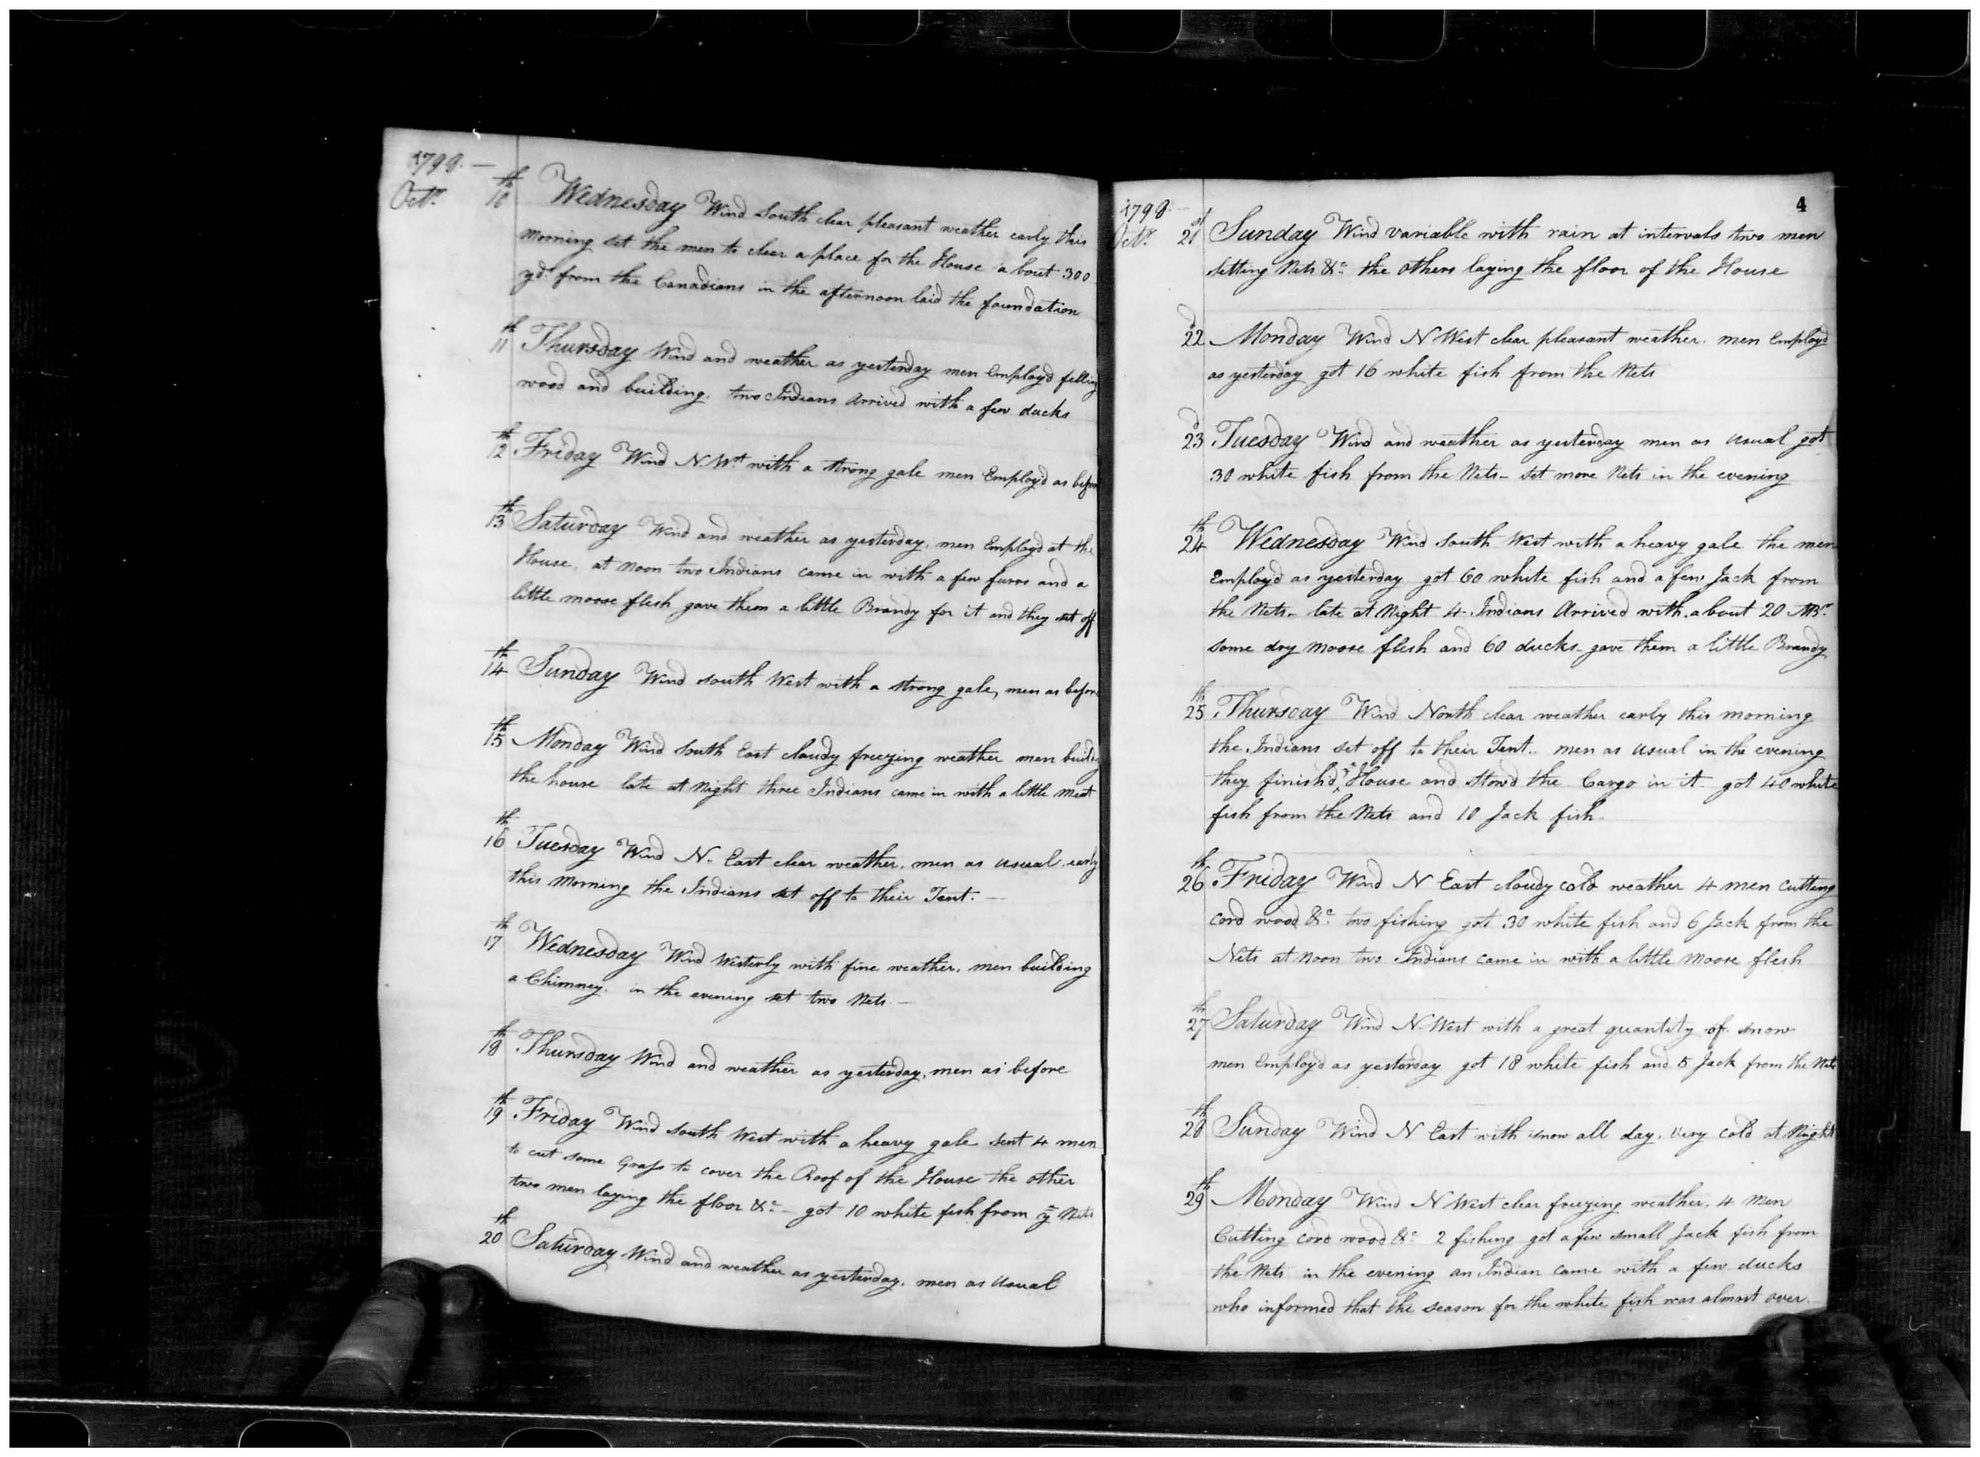 1798.—
Octr. 10th Wednesday Wind South clear pleasant weather early this
morning set the men to clear a place for the House about 300
yds from the Canadians in the afternoon laid the foundation
11th Thursday Wind and weather as yesterday men Employd felling
wood and building. two Indians Arrived with a few ducks
12th Friday Wind N. Wt with a strong gale men Employd as before
13th Saturday Wind and weather as yesterday. men Employd at the
House. at Noon two Indians came in with a few furrs and a
little moose flesh gave them a little Brandy for it and they set off
14th Sunday Wind South West with a strong gale, men as before
15th Monday Wind South East cloudy freezing weather men buildg
the house late at Night three Indians came in with a little meat
16th Tuesday Wind N. East clear weather. men as usual. early
this Morning the Indians set off to their Tent. —
17th Wednesday Wind Westerly with fine weather. men building
a Chimney. in the evening set two Nets —
18th Thursday Wind and weather as yesterday, men as before
19th Friday Wind South West with a heavy gale sent 4 men
to cut some Grass to cover the Roof of the House the other
two men laying the floor &c — got 10 white fish from ye Nets
20th Saturday Wind and weather as yesterday. men as usual
4
1798.—
Octr. 21st Sunday Wind variable with rain at intervals two men
setting Nets &c. the others laying the floor of the House
22d Monday Wind N West clear pleasant weather. men Employd
as yesterday got 16 white fish from the Nets
23d Tuesday Wind and weather as yesterday men as usual got
30 white fish from the Nets – set more Nets in the evening
24th Wednesday Wind South West with a heavy gale the men
Employd as yesterday got 60 white fish and a few Jack from
the Nets. late at Night 4 Indians Arrived with about 20 MBr.
some dry moose flesh and 60 ducks gave them a little Brandy
25th Thursday Wind North clear weather early this morning
the Indians set off to their Tent.. men as usual in the evening
they finish'd ye House and stow'd the Cargo in it got 40 white
fish from the Nets and 10 Jack fish.
26th Friday Wind N East cloudy cold weather 4 men cutting
cord wood &c. two fishing got 30 white fish and 6 Jack from the
Nets at Noon two Indians came in with a little moose flesh
27th Saturday Wind N. West with a great quantity of snow
men Employd as yesterday got 18 white fish and 8 Jack from the Nets
28th Sunday Wind N East with snow all day. very cold at Night
29th Monday Wind N West clear freezing weather. 4 men
Cutting cord wood &c 2 fishing got a few small Jack fish from
the Nets in the evening an Indian came with a few ducks
who informed that the season for the white fish was almost over.